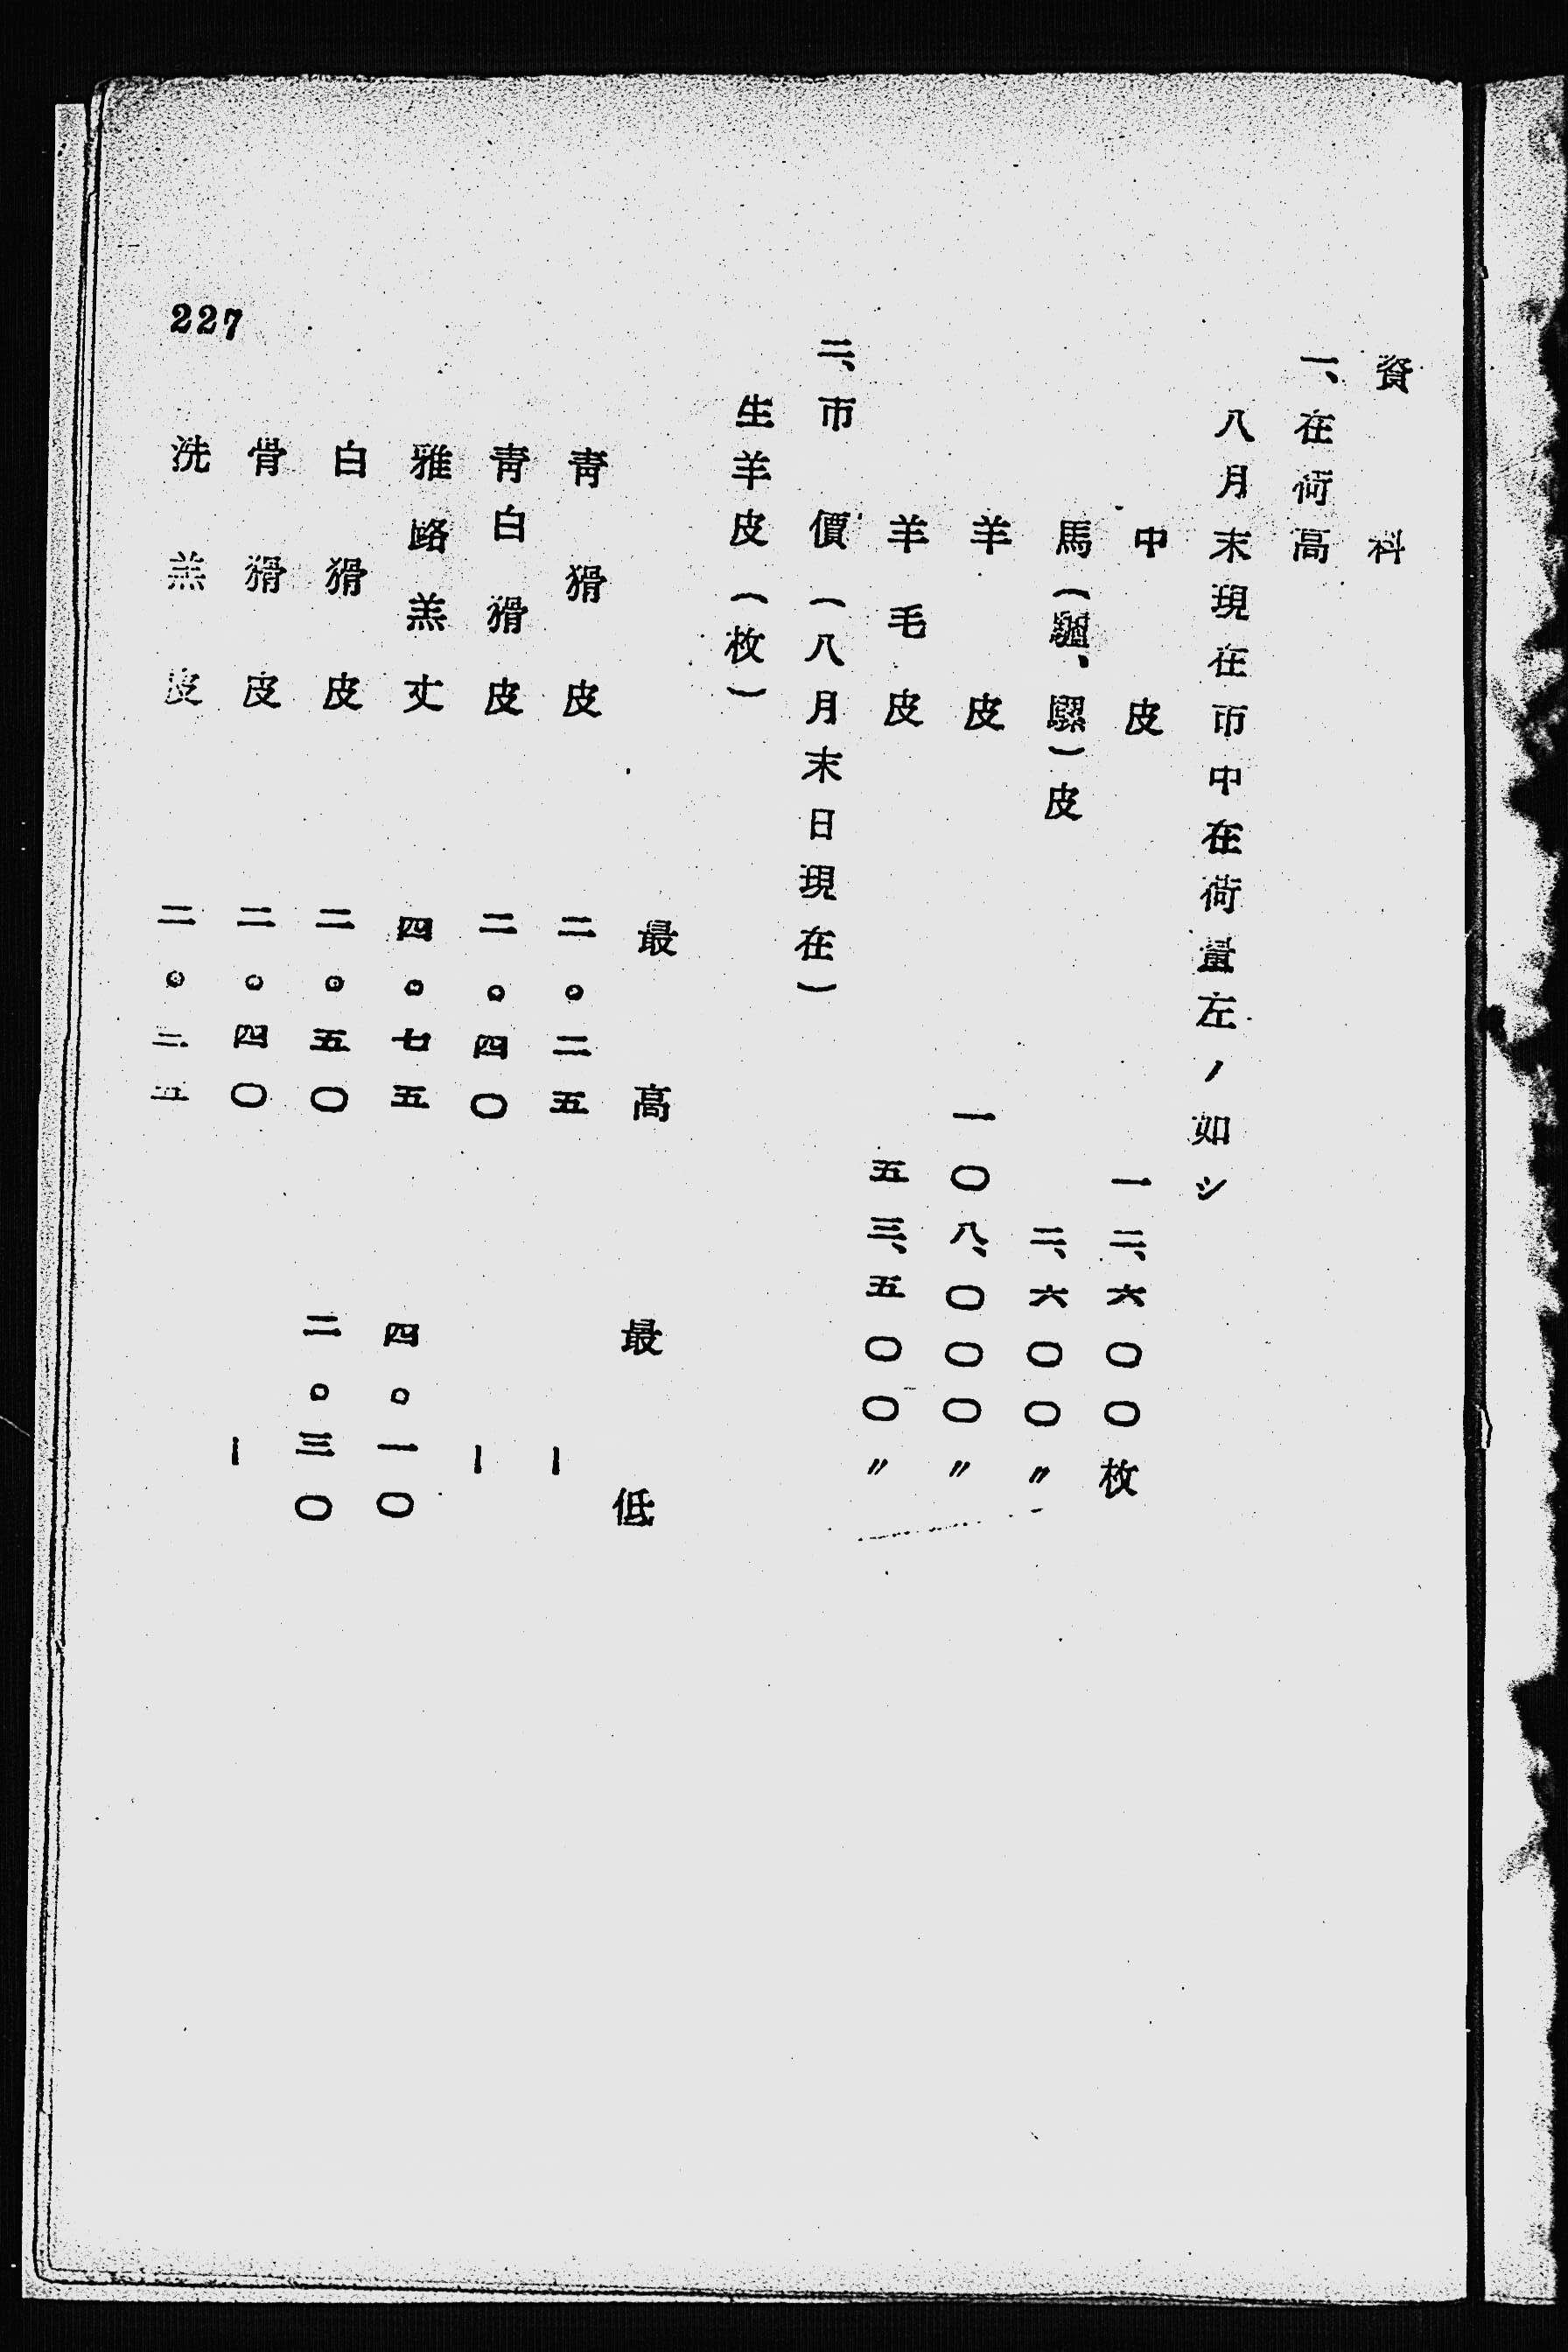 資料
一、在荷高
八月末現在市中在荷量左ノ如シ
中皮 一二、六〇〇枚
馬(驢、騾)皮 二、六〇〇〃
羊皮 一〇八、〇〇〇〃
羊毛皮 五三、五〇〇〃
二、市價(八月末日現在)
生羊皮(枚)
最高 最低
靑猾皮 二。二五 ー
靑白猾皮 二。四〇 ー
雅路羔丈 四。七五 四。一〇
白猾皮 二。五〇 二。三〇
骨猾皮 二。四〇 ー
洗羔皮
227